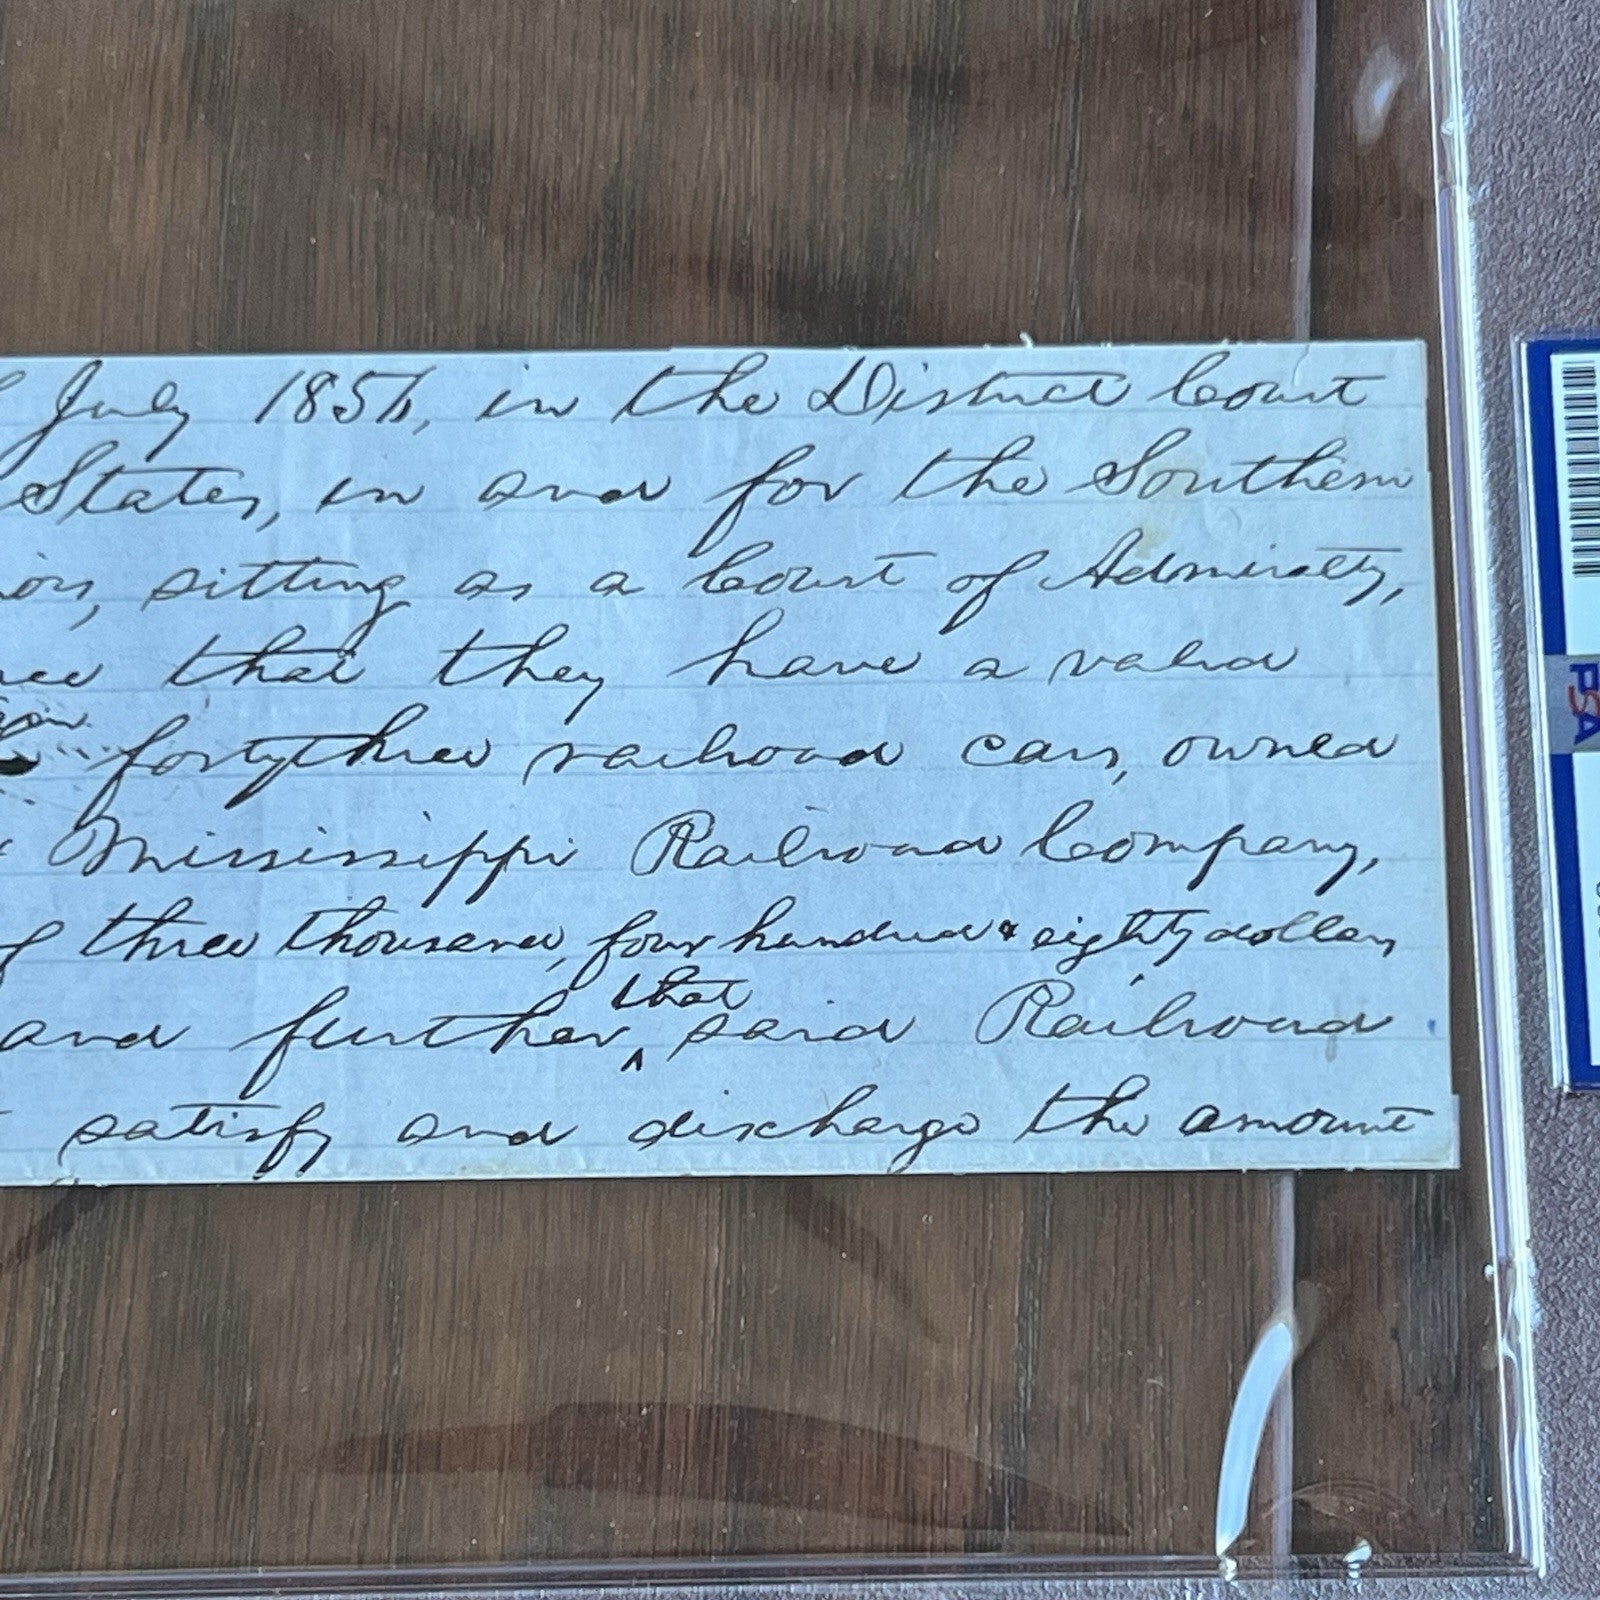 July 1856, in the District Court
States, in and for the Southern
ois, sitting as a Court of Admiralty,
ree that they have a valid
forty three railroad cars, owned
Mississippi Railroad Company,
of three thousand, four hundred & eighty dollars
that
and further, said Railroad
satisfy and discharge the amount
PSA